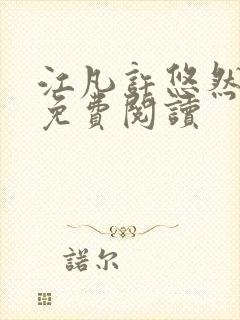 江凡許悠然
免費閱讀
諾尔